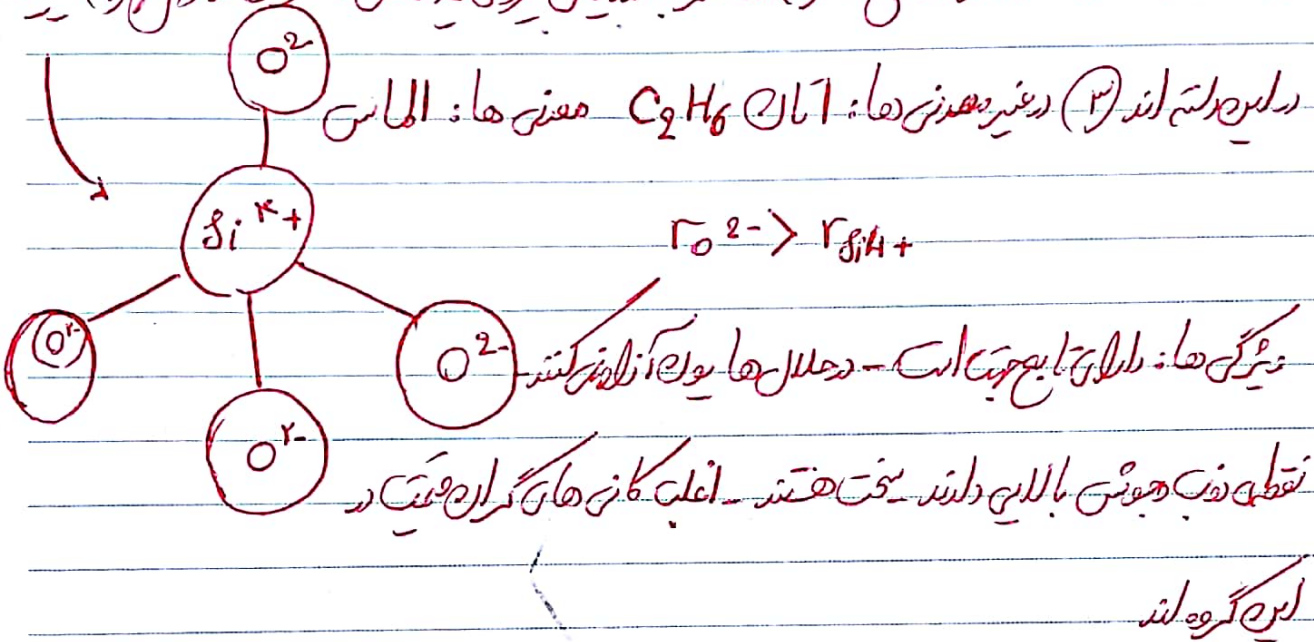 O2-
در این دسته اند (۳) در غیر معدنی ها: اتان C2H6 معدنی ها: الماس
Si ۴+
rO 2- > rSi4+
O۲-
O2-
ویژگی ها: دارای تابع جهت است - در حلال ها یون آزاد نمی کنند -
O۲-
نقطه ذوب و جوش بالایی دارند - سخت هستند - اغلب کانی های گران قیمت در
این گروه اند